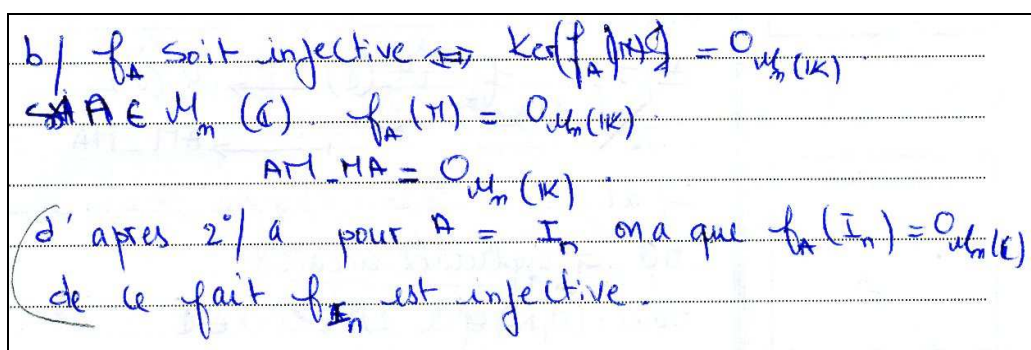 b/ f_A soit injective ⇔ Ker(f_A) = 0_{M_n(IK)}
A ∈ M_n(ℂ). f_A(M) = 0_{M_n(IK)}
AM - MA = 0_{M_n(IK)}.
d'apres 2°/ a pour A = I_n on a que f_A(I_n) = 0_{M_n(ℂ)}
de ce fait f_{I_n} est injective.